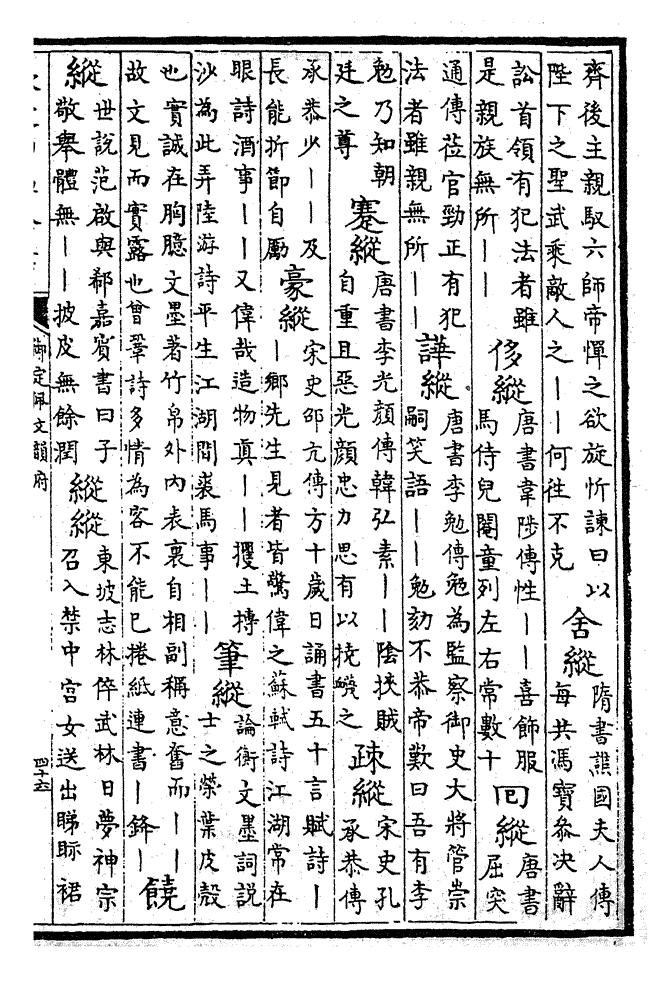 齊後主親馭六師帝憚之欲旋忻諫曰以
陛下之聖武乘敵人之——何往不克
舍縱
隋書譙國夫人傳
每共馮寶參決辭
訟首領有犯法者雖
是親族無所——
侈縱
唐書韋陟傳性——喜飾服
馬侍兒閹童列左右常數十
囘縱
唐書
屈突
通傳莅官勁正有犯
法者雖親無所——
譁縱
唐書李勉傳勉為監察御史大將管崇
嗣笑語——勉劾不恭帝歎曰吾有李
勉乃知朝
廷之尊
蹇縱
唐書李光顏傳韓弘素——陰挾賊
自重且惡光顏忠力思有以撓衊之
疎縱
宋史孔
承恭傳
承恭少——及
長能折節自勵
豪縱
宋史邵亢傳方十歲日誦書五十言賦詩—
—鄉先生見者皆驚偉之蘇軾詩江湖常在
眼詩酒事——又偉哉造物真——攫土摶
沙為此弄陸游詩平生江湖間裘馬事——
筆縱
論衡文墨詞說
士之榮葉皮殼
也實誠在胸臆文墨著竹帛外內表裏自相副稱意奮而——
故文見而實露也曾鞏詩多情為客不能已捲紙連書—鋒—
饒
縱
世說范啟與郗嘉賓書曰子
敬舉體無——披皮無餘潤
縱縱
東坡志林倅武林日夢神宗
召入禁中宮女送出睇眎裙
御定佩文韻府
四十五